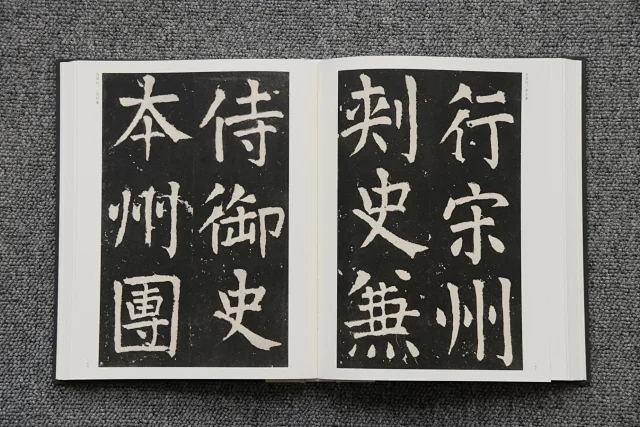 行宋州
刺史兼
侍御史
本州團